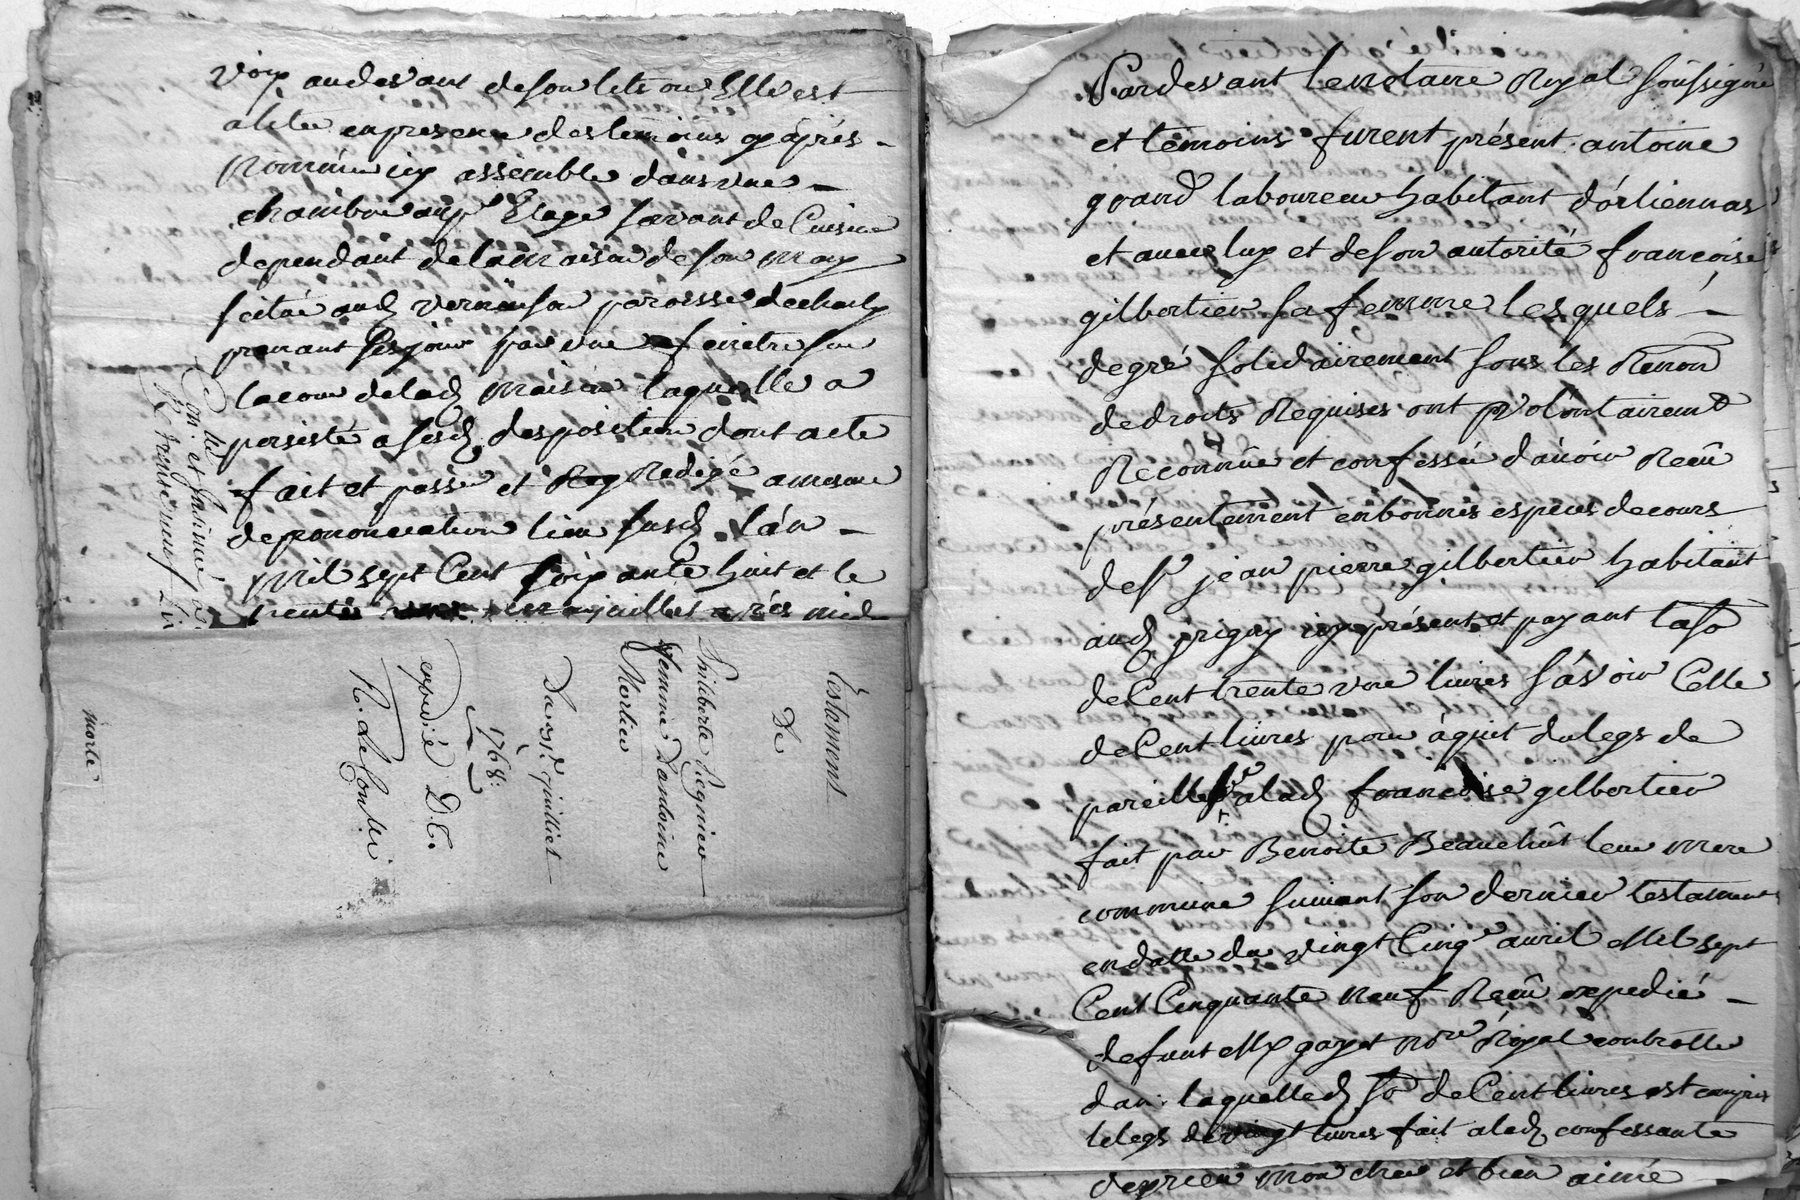 voix au devant de son lit ou Elle est
alitée en presence des temoins cy apres
Nommé icy assemblé dans une
chambre au pr Etage servant de Cuisine
dependant de la maison de son mary
scitué aud vernaison paroisse de charly
prenant ses jour par une fenetre sur
la cour de lad maison laquelle a
persisté a sesd disposition dont acte
fait et passé et Redigé a mesure
de prononciation lieu susd l'an
mil sept Cent soixante huit et le
trente juillet après midi
Con. et Insinué
trente neuf
Testament
De
Philiberte Regnier
femme d'antoine
Mortier
Du 31e juilliet
1768:
expedié D.C.
R. le Con
morte
Pardevant le notaire Royal soussigné
et témoins furent présent antoine
grand laboureur habitant d'orliennas
et avec luy et de son autorité francoise
gilbertier sa femme lesquels
de gré solidairement sous les Renon
de droits Requises ont volontairemt
Reconnûe et confessée d'avoir Reçû
présentement en bonnes especes de cours
de sr jean pierre gilbertier habitant
aud grigny icy présent et payant la so
de Cent trente une livres sávoir Celle
de Cent livres pour áquit du legs de
pareille so a lad francoise gilbertier
fait par Benoite Beauchût leur mere
commune suivant son dernier testament
en datte du vingt Cinq avril Mil sept
Cent Cinquante neuf Reçû expedié
defunt Me gayet Nore Royal controllé
dan laquelle d so de Cent livres est compris
le legs de vingt livres fait a lad confessante
de mon cher et bien aimé